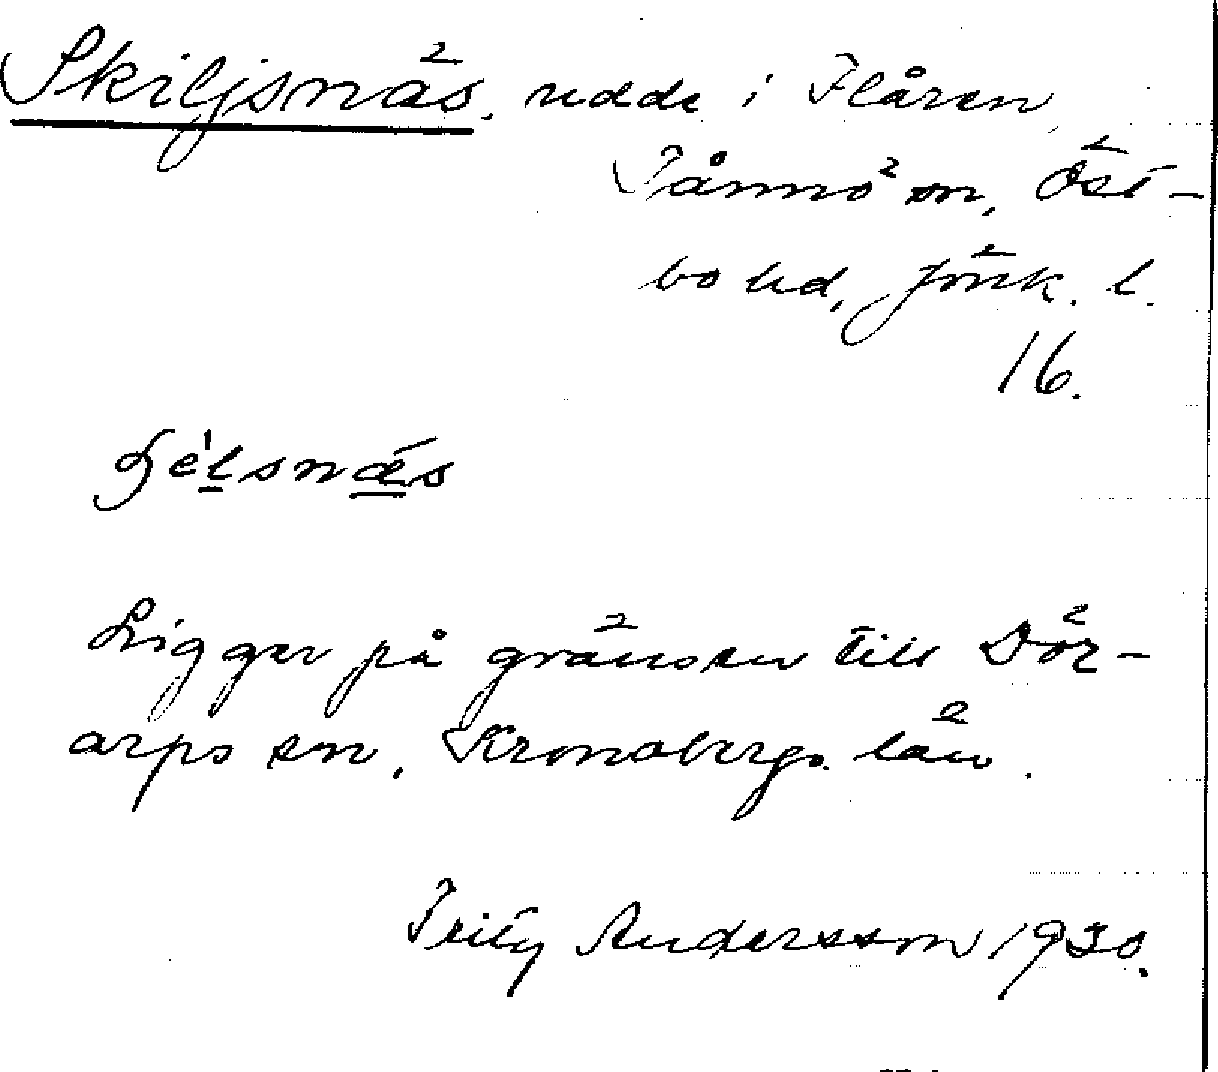 Skiljsnäs, udde i Flåren,
Tånnö sn, Öst-
bo hd, Jönk. l.
16.
ʃélsnæ̀s
Ligger på gränsen till Dör-
arps sn, Kronobergs län.
Fritz Andersson 1930.